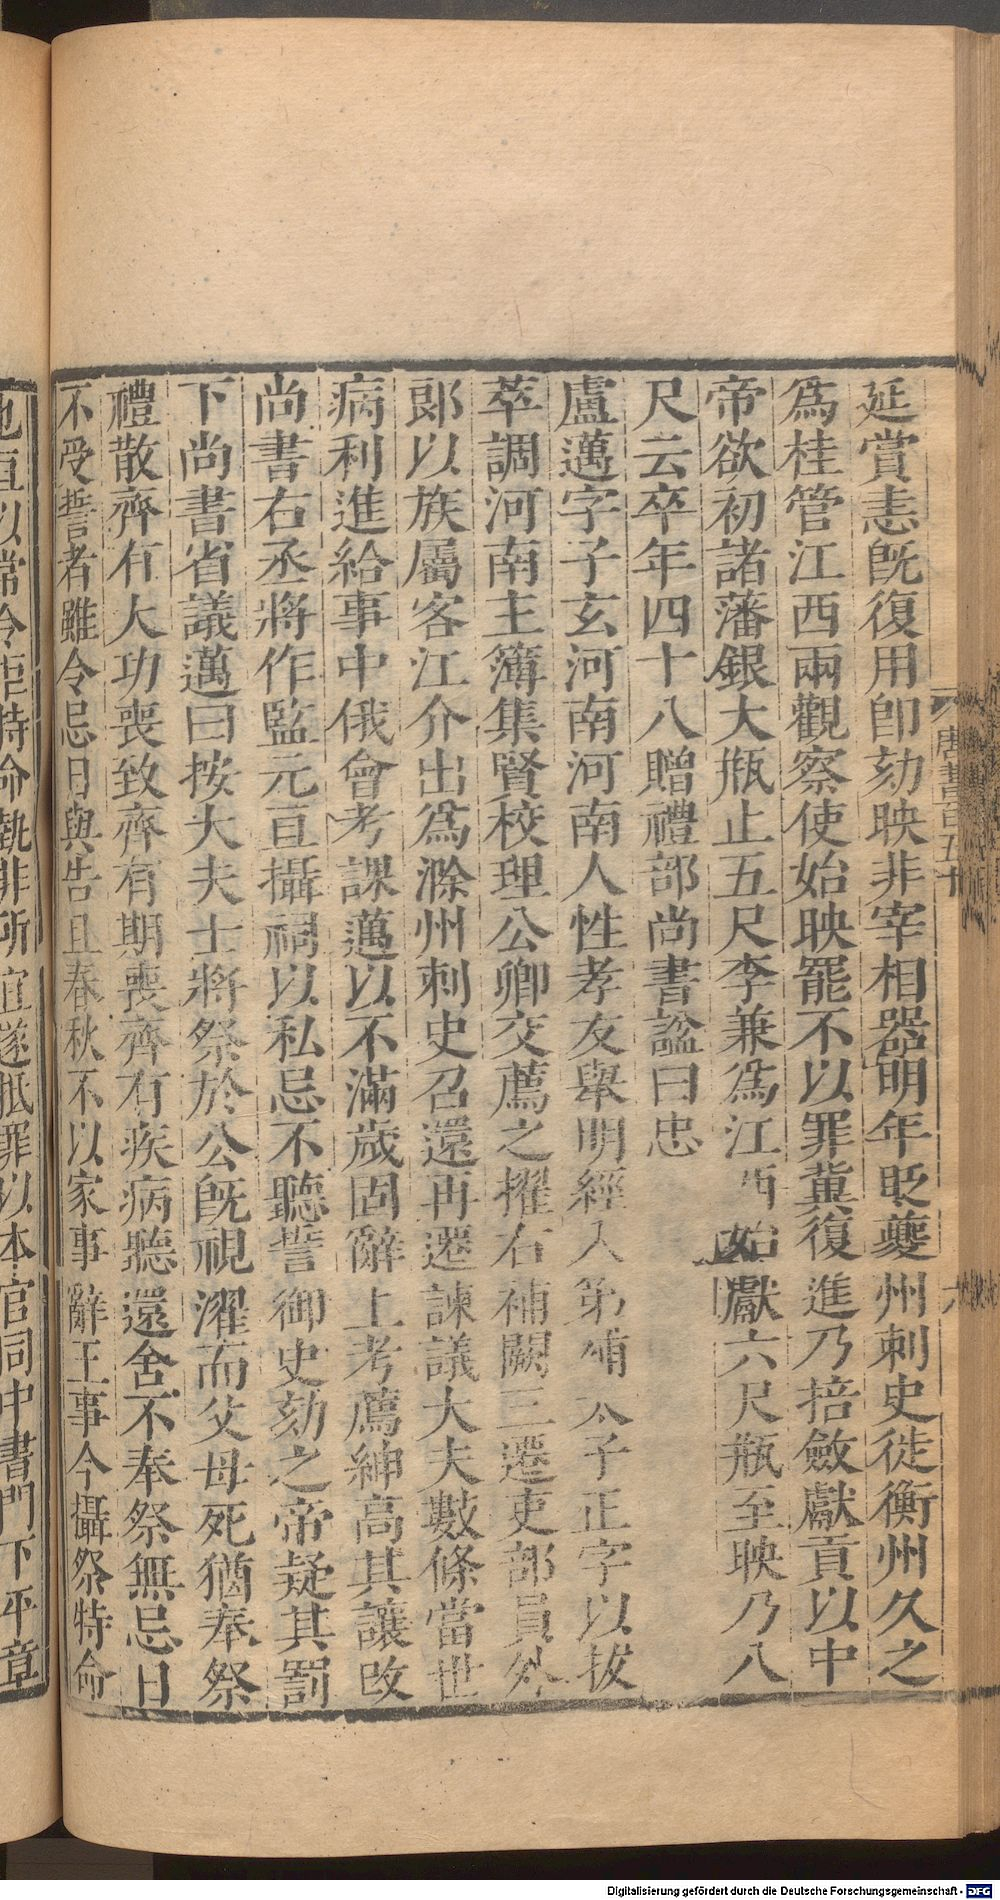 延賞恚旣復用卽劾映非宰相器明年貶夔州刺史徙衡州久之
爲桂管江西兩觀察使始映罷不以罪冀復進乃掊斂獻貢以中
帝欲初諸藩銀大甁止五尺李兼爲江西始獻六尺甁至映乃八
尺云卒年四十八贈禮部尚書諡曰忠
盧邁字子玄河南河南人性孝友舉明經入第補太子正字以拔
萃調河南主簿集賢校理公卿交薦之擢右補闕三遷吏部員外
郎以族屬客江介出爲滁州刺史召還再遷諫議大夫數條當世
病利進給事中俄會考課邁以不滿歲固辭上考薦紳高其讓改
尚書右丞將作監元亘攝祠以私忌不聽誓御史劾之帝疑其罰
下尚書省議邁曰按大夫士將祭於公旣視濯而父母死猶奉祭
禮散齊有大功喪致齊有期喪齊有疾病聽還舍不奉祭無忌日
不受誓者雖令忌日與告且春秋不以家事辭王事今攝祭特命
也亘以常令拒特命執非所宜遂抵罪以本官同中書門下平章
唐書百五十
六
Digitalisierung gefördert durch die Deutsche Forschungsgemeinschaft - DFG